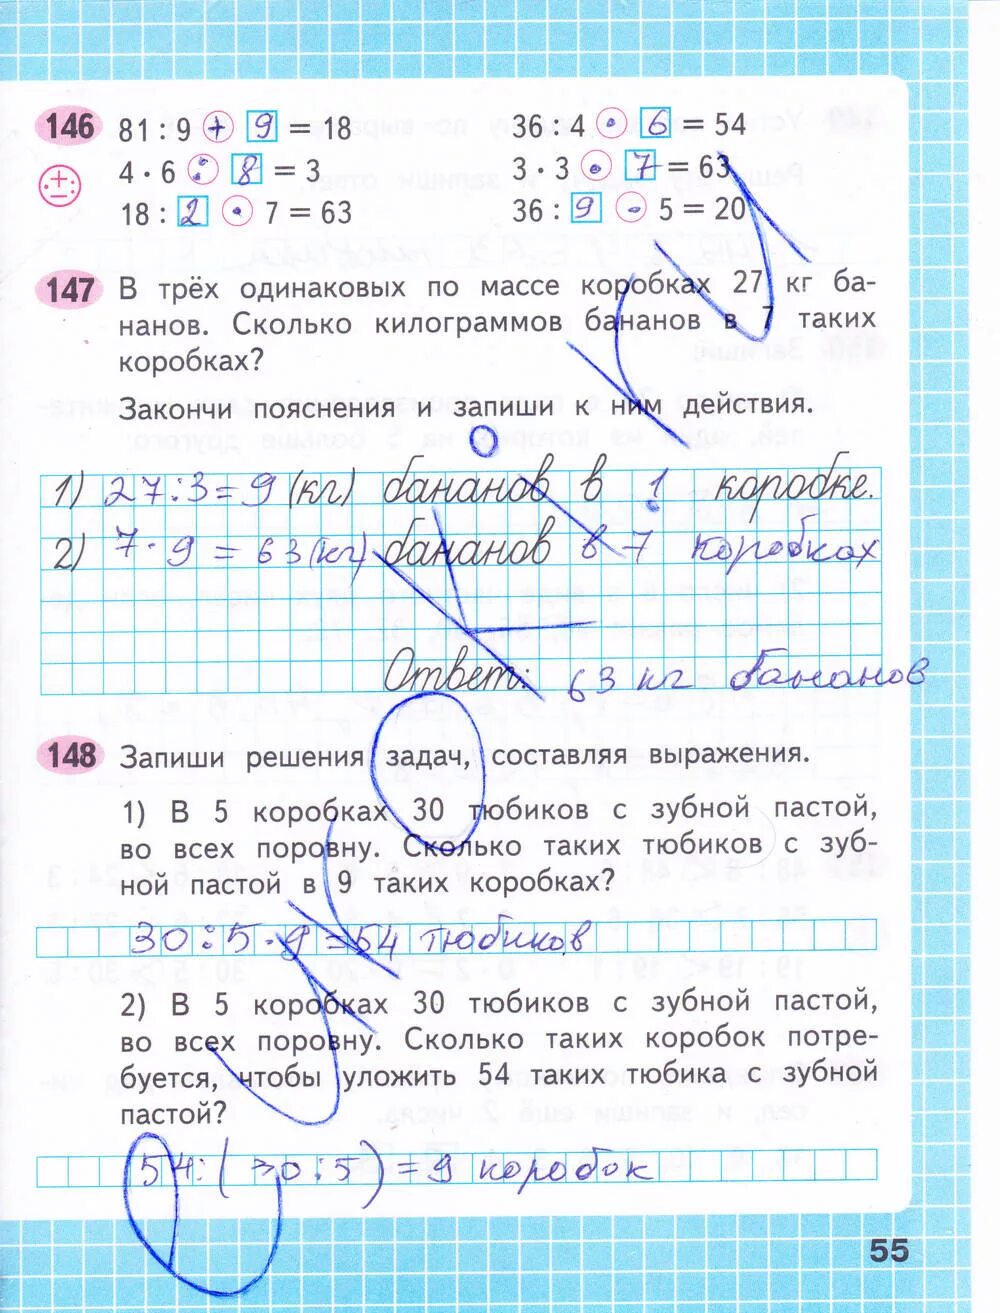 146 81 : 9 + 9 = 18 36 : 4 · 6 = 54
4 · 6 : 8 = 3 3 · 3 · 7 = 63
18 : 2 · 7 = 63 36 : 9 · 5 = 20
147 В трёх одинаковых по массе коробках 27 кг ба-
нанов. Сколько килограммов бананов в 7 таких
коробках?
Закончи пояснения и запиши к ним действия.
1) 27 : 3 = 9 (кг) бананов в 1 коробке.
2) 7 · 9 = 63 (кг) бананов в 7 коробках
Ответ: 63 кг бананов
148 Запиши решения задач, составляя выражения.
1) В 5 коробках 30 тюбиков с зубной пастой,
во всех поровну. Сколько таких тюбиков с зуб-
ной пастой в 9 таких коробках?
30 : 5 · 9 = 54 тюбиков
2) В 5 коробках 30 тюбиков с зубной пастой,
во всех поровну. Сколько таких коробок потре-
буется, чтобы уложить 54 таких тюбика с зубной
пастой?
54 : ( 30 : 5 ) = 9 коробок
55